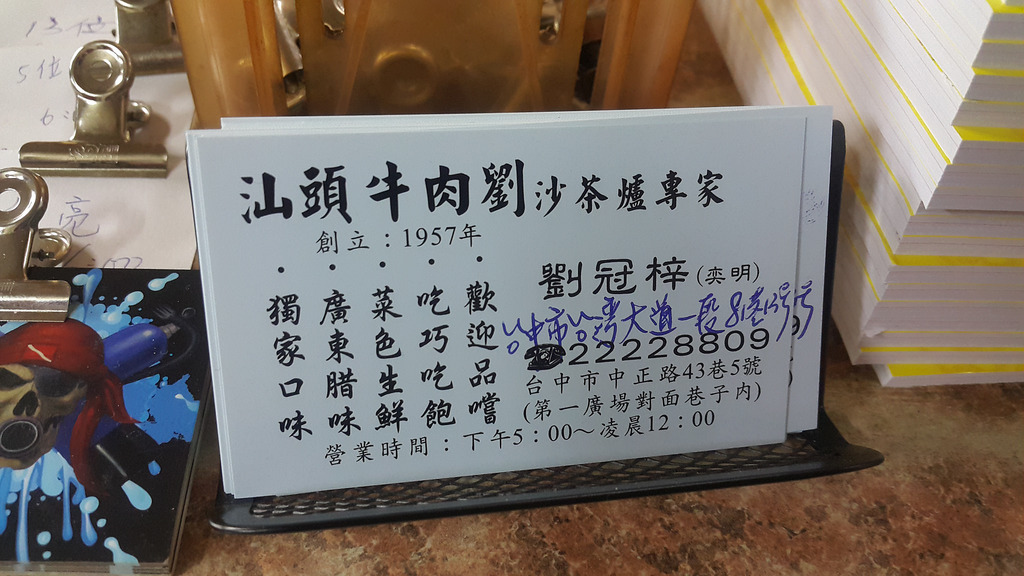 13位
5位
6
亮
汕頭牛肉劉沙茶爐專家
創立：1957年
• • • • •
歡迎品嚐
吃巧吃飽
菜色生鮮
廣東腊味
獨家口味
劉冠梓(奕明)
台中市台灣大道一段
☎22228809
台中市中正路43巷5號
(第一廣場對面巷子內)
營業時間：下午5：00～凌晨12：00